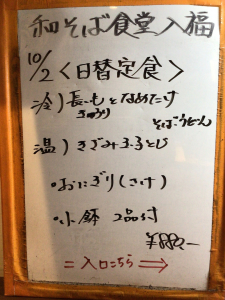 和そば食堂 入福
10/2 <日替定食>
冷) 長いもとなめたけ
きゅうり
そばorうどん
温) きざみ玉子とじ
・おにぎり(さけ)
・小鉢 2品付
¥880-
= 入口こちら ⇒